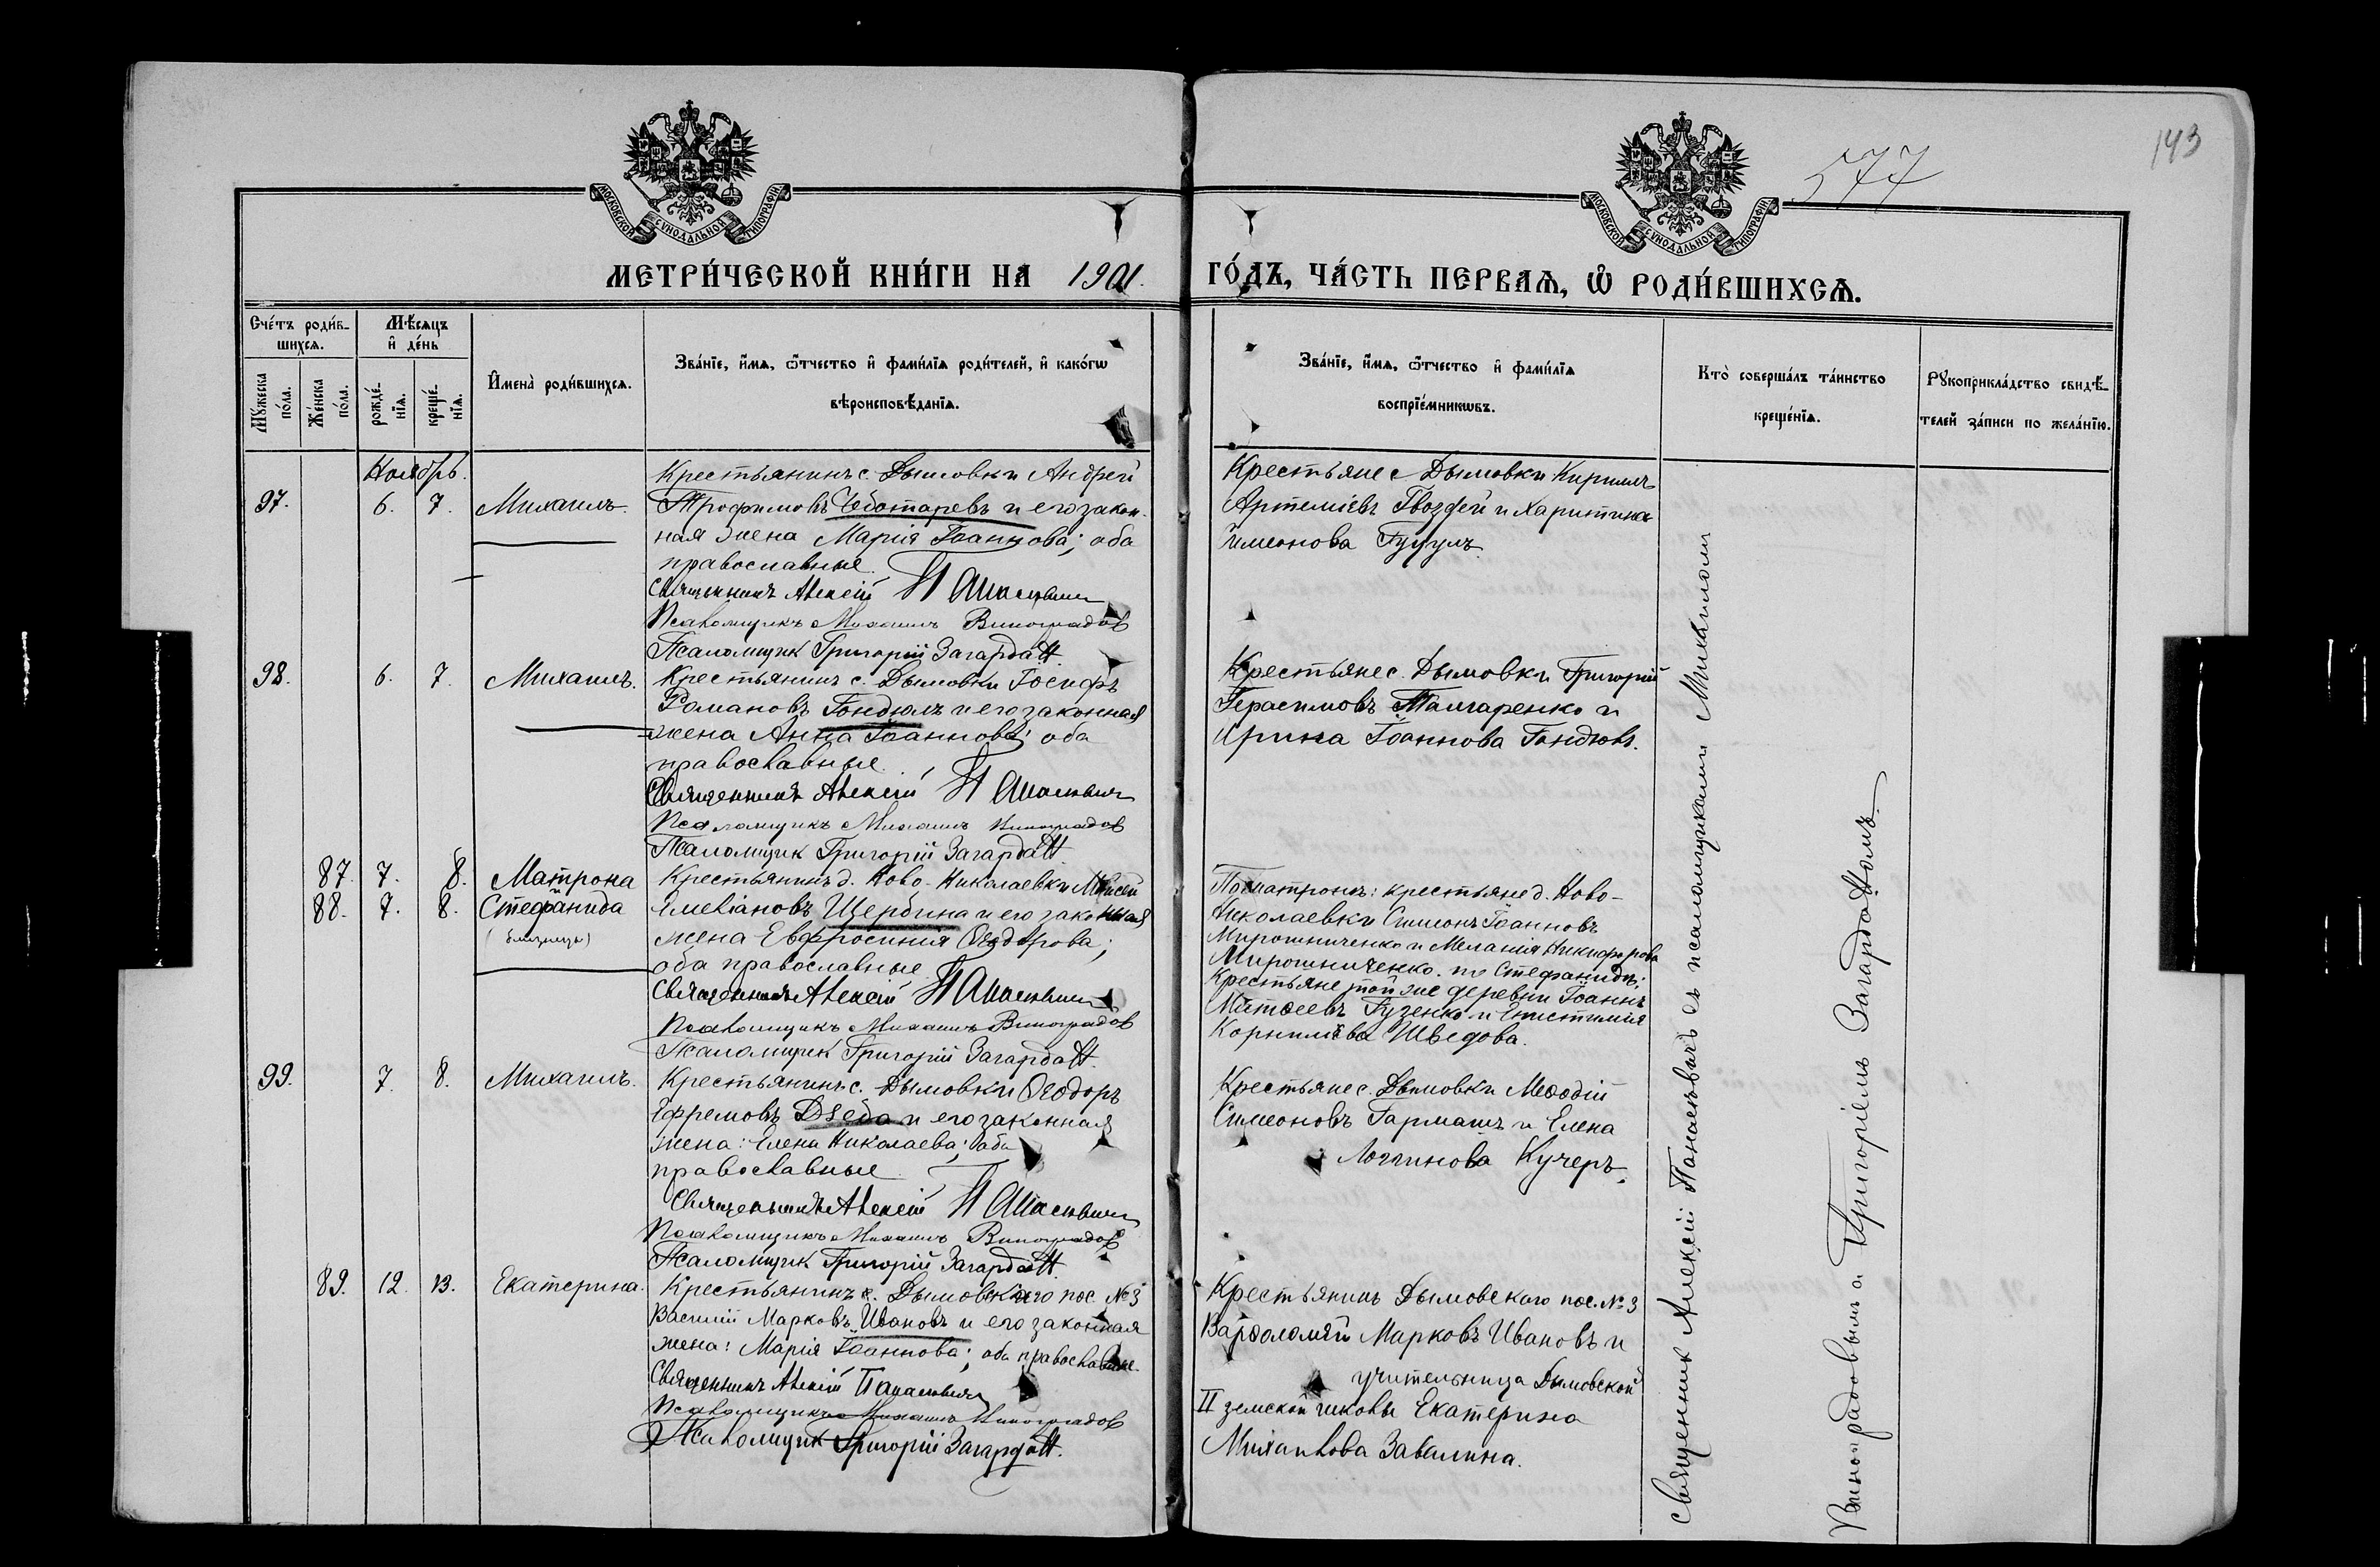 143
577
МОСКОВСКОЙ СѴНОДАЛЬНОЙ ТИПОГРАФІИ
МОСКОВСКОЙ СѴНОДАЛЬНОЙ ТИПОГРАФІИ
МЕТРИ́ЧЕСКОЙ КНИ́ГИ НА 1901. ГО́ДЪ, ЧА́СТЬ ПЕРВАѦ, Ѡ҆ РОДИ́ВШИХСѦ.
Сче́тъ роди́в-
шихсѧ.
Мꙋ́жеска по́ла.
Же́нска по́ла.
Мѣ́сѧцъ и҆ де́нь
рожде́-нїѧ.
креще́-нїѧ.
И҆мена̀ роди́вшихсѧ.
Зва́нїе, и҆́мѧ, ѻ҆́тчество и҆ фами́лїѧ роди́телей, и҆ како́гѡ
вѣроисповѣ́данїѧ.
Зва́нїе, и҆́мѧ, ѻ҆́тчество и҆ фами́лїѧ
воспрїе́мникѡвъ.
Кто̀ соверша́лъ та́инство
креще́нїѧ.
Рꙋкоприкла́дство свидѣ́-
телей за́писи по жела́нїю.
Ноябрь.
97. 6. 7. Михаилъ.
Крестьянинъ с. Дымовки Андрей
Трофимовъ Чеботаревъ и его закон-
ная жена Марія Іоаннова; оба
православные.
Священникъ Алексій Панасевич
Псаломщикъ Михаилъ Виноградов
Псаломщик Григорій Загардан
Крестьяне с Дымовки Кириллъ
Артеміевъ Гвоздей и Харитина
Симеонова Гуцулъ.
98. 6. 7. Михаилъ.
Крестьянинъ с. Дымовки Іосифъ
Романовъ Гондюлъ и его законная
жена Анна Іоаннова; оба
православные.
Священникъ Алексій Панасевич
Псаломщикъ Михаилъ Виноградов
Псаломщик Григорій Загардан
Крестьяне с. Дымовки Григорій
Герасимовъ и
Ирина Іоаннова
87. 7. 8. Матрона
и
88. 7. 8. Стефанида
(близнецы)
Крестьянинъ д. Ново-Николаевки Моисей
Емеліановъ Щербина и его законная
жена Евфросинія Ѳеодорова;
оба православные
Священникъ Алексій Панасевич
Псаломщикъ Михаилъ Виноградов
Псаломщик Григорій Загардан
крестьяне д. Ново-
Николаевки Симеонъ Іоанновъ
Мирошниченко и Меланія Никифорова
Мирошниченко. по Стефанидѣ:
Крестьяне той же деревни Іоаннъ
Матѳеевъ Гузенко и Епистимія
Корниліева Шведова.
99. 7. 8. Михаилъ.
Крестьянинъ с. Дымовки Ѳеодоръ
Ефремовъ Дзеба и его законная
жена: Елена Николаева; оба
православные
Священникъ Алексій Панасевич
Псаломщикъ Михаилъ Виноградов
Псаломщик Григорій Загардан
Крестьяне с. Дымовки Меѳодій
Симеоновъ Гармашъ и Елена
Логгинова Кучеръ.
89. 12. 13. Екатерина.
Крестьянинъ с. Дымовскаго пос. №3
Василій Марковъ Ивановъ и его законная
жена: Марія Іоаннова; оба православные
Священникъ Алексій Панасевич
Псаломщикъ Михаилъ Виноградов
Псаломщик Григорій Загардан.
Крестьянинъ Дымовскаго пос. №3
Варѳоломей Марковъ Ивановъ и
учительница Дымовской
II земской школы Екатерина
Михайлова Завалина.
Священник Алексій Панасевичъ съ псаломщиками Михаиломъ
Виноградовымъ и Григоріемъ Загарданомъ.